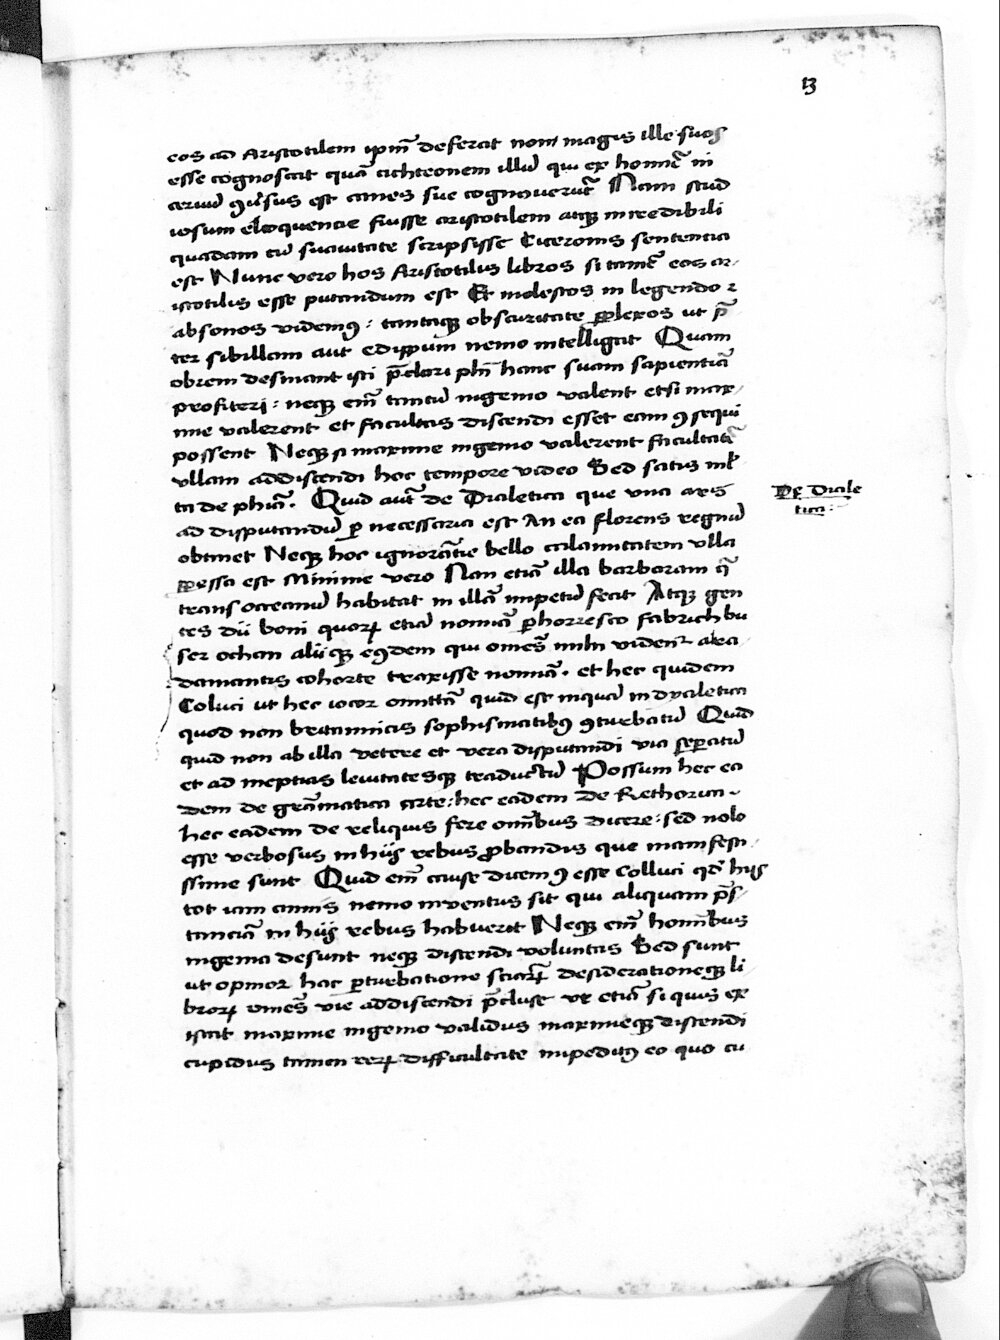 13
eos ad Aristotilem ipm̄ deferat non magis ille suos
esse cognoscat quā actheonem illū qui ex homine in
cervū ꝯversus est canes sue cognoverūt Nam stud
iosum eloquencie fuisse aristotilem atqꝫ incredibili
quadam cū suavitate scripsisse Ciceronis sententia
est Nunc vero hos Aristotilis libros si tamē eos ar-
istotilis esse putandum est Et molestos in legendo ⁊
absonos videmꝯ : tantaqꝫ obscuritate ꝑplexos ut p̄
ter sibillam aut edippum nemo intelligat Quam
obrem desinant isti p̄clari phī hanc suam sapientiā
profiteri : neqꝫ em̄ tantū ingenio valent etsi max-
ime valerent et facultas discendi esset eam ꝯsequi
possent Neqꝫ si maxime ingenio valerent facultatē
ullam addiscendi hoc tempore video Sed satis ml̄
ta de phīa. Quid aut̄ de Dialetica que una axis
De Diale
tica :
ad disputandū ꝑ necessaria est An ea florens regnū
obtinet Neqꝫ hoc ignorātie bello calamitatem ulla
ꝑpessa est Minime vero Nan etiā illa barbaram q̄
trans oceanū habitat in illā impetū fecit Atqꝫ gen
tes dii boni quoꝝ etiā nomīa ꝑhorresco fabrich bu
ser ocham aliiqꝫ eꝯdem qui omēs mihi videnꝰ a Ra
damantis cohorte traxisse nomīa. et hec quidem
Coluci ut hec iocor omittā quid est inquā in dyaletica
quod non britannicis sophismatibꝯ ꝯturbatū Quid
quid non ab illa vetere et vera disputandi via seꝑatū
et ad ineptias levitatesqꝫ traductū Possum hec ea
dem de grāmatica arte : hec eadem de Rethorica-
hec eadem de reliquis fere om̄ibus dicere : sed nolo
esse verbosus in hijs rebus ꝓbandis que manifesti-
ssime sunt Quid em̄ cause dicemꝯ esse Colluci qd̄ hijs
tot iam annis nemo inventus sit qui aliquam p̄s-
tanciā in hijs rebus habuerit Neqꝫ em̄ hom̄ibus
ingenia desunt neqꝫ discendi voluntas Sed sunt
ut opinor hac ꝑturbatione sciaꝝ desiderationeqꝫ li
broꝝ omēs vie addiscendi p̄cluse ut etiā si quis ex
istat maxime ingenio validus maximeqꝫ discendi
cupidus tamen reꝝ difficultate impeditꝯ eo quo cu